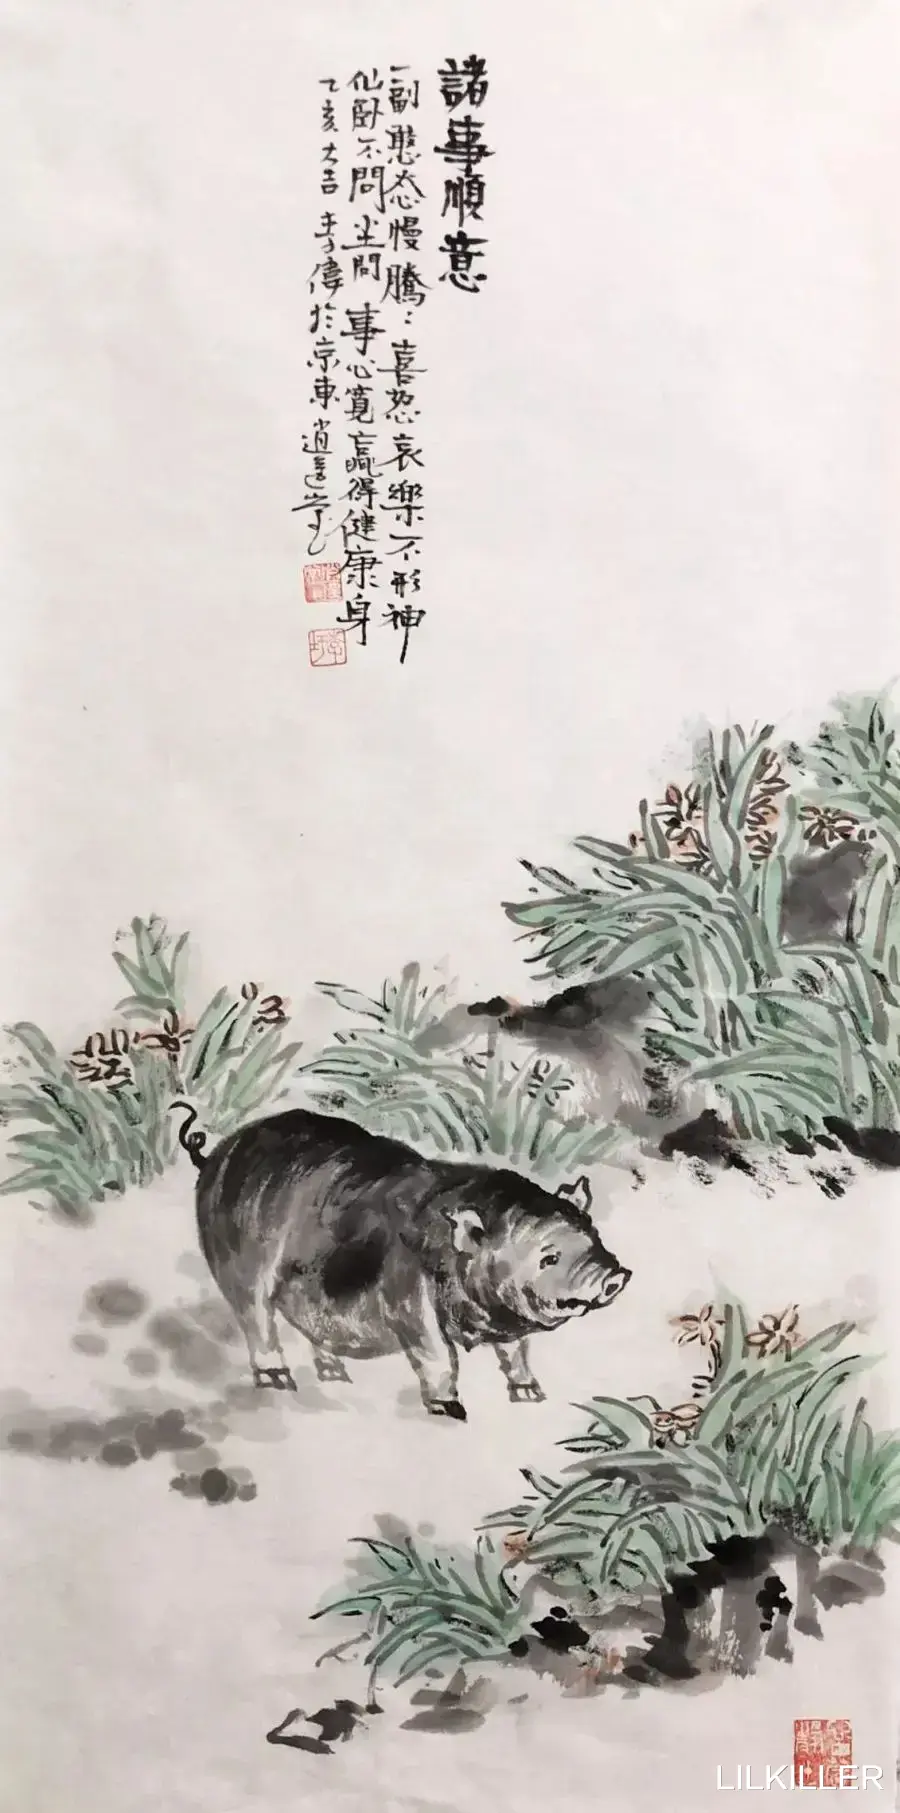 諸事順意
一副憨态慢騰〻喜怒哀樂不形神
仙卧不問尘間事心寬贏得健康身
亥大吉 偉於京東逍遥
LILKILLER